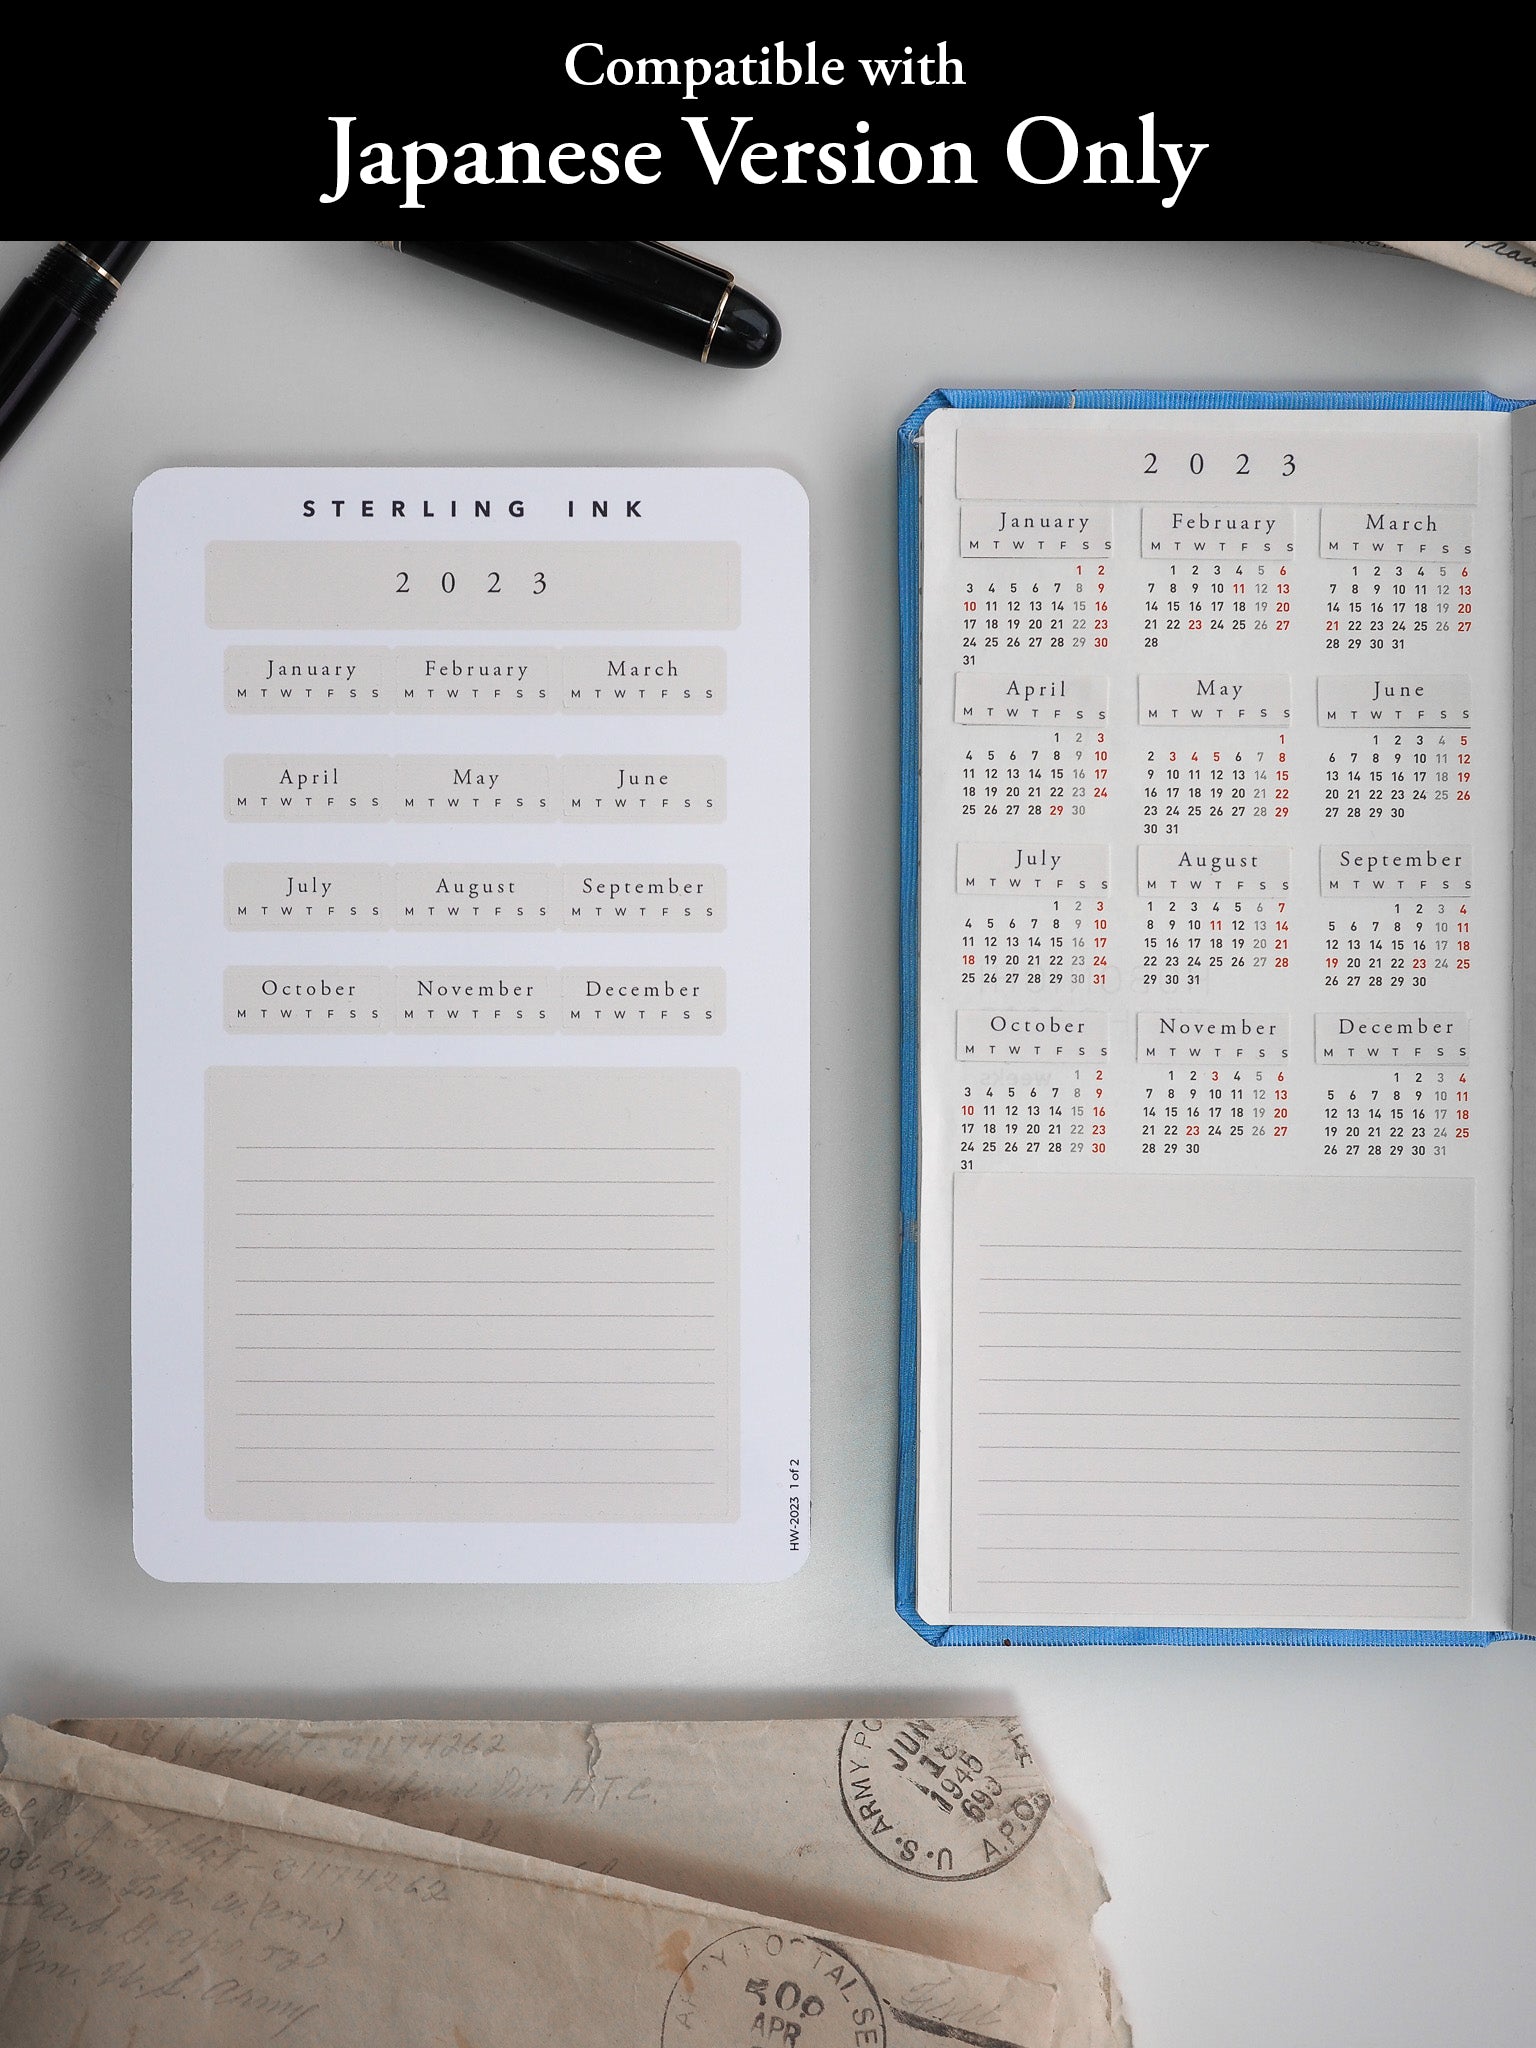 Compatible with
Japanese Version Only
STERLING INK
2 0 2 3
January February March
M T W T F S S M T W T F S S M T W T F S S
April May June
M T W T F S S M T W T F S S M T W T F S S
July August September
M T W T F S S M T W T F S S M T W T F S S
October November December
M T W T F S S M T W T F S S M T W T F S S
HW-2023 1 of 2
2 0 2 3
January February March
M T W T F S S M T W T F S S M T W T F S S
1 2 1 2 3 4 5 6 1 2 3 4 5 6
3 4 5 6 7 8 9 7 8 9 10 11 12 13 7 8 9 10 11 12 13
10 11 12 13 14 15 16 14 15 16 17 18 19 20 14 15 16 17 18 19 20
17 18 19 20 21 22 23 21 22 23 24 25 26 27 21 22 23 24 25 26 27
24 25 26 27 28 29 30 28 28 29 30 31
31
April May June
M T W T F S S M T W T F S S M T W T F S S
1 2 3 1 1 2 3 4 5
4 5 6 7 8 9 10 2 3 4 5 6 7 8 6 7 8 9 10 11 12
11 12 13 14 15 16 17 9 10 11 12 13 14 15 13 14 15 16 17 18 19
18 19 20 21 22 23 24 16 17 18 19 20 21 22 20 21 22 23 24 25 26
25 26 27 28 29 30 23 24 25 26 27 28 29 27 28 29 30
30 31
July August September
M T W T F S S M T W T F S S M T W T F S S
1 2 3 1 2 3 4 5 6 7 1 2 3 4
4 5 6 7 8 9 10 8 9 10 11 12 13 14 5 6 7 8 9 10 11
11 12 13 14 15 16 17 15 16 17 18 19 20 21 12 13 14 15 16 17 18
18 19 20 21 22 23 24 22 23 24 25 26 27 28 19 20 21 22 23 24 25
25 26 27 28 29 30 31 29 30 31 26 27 28 29 30
October November December
M T W T F S S M T W T F S S M T W T F S S
1 2 1 2 3 4 5 6 1 2 3 4
3 4 5 6 7 8 9 7 8 9 10 11 12 13 5 6 7 8 9 10 11
10 11 12 13 14 15 16 14 15 16 17 18 19 20 12 13 14 15 16 17 18
17 18 19 20 21 22 23 21 22 23 24 25 26 27 19 20 21 22 23 24 25
24 25 26 27 28 29 30 28 29 30 26 27 28 29 30 31
31
31174262
U.S. ARMY
JUN
18
1945
A.P.O.
31174262
U.S. Army
APR